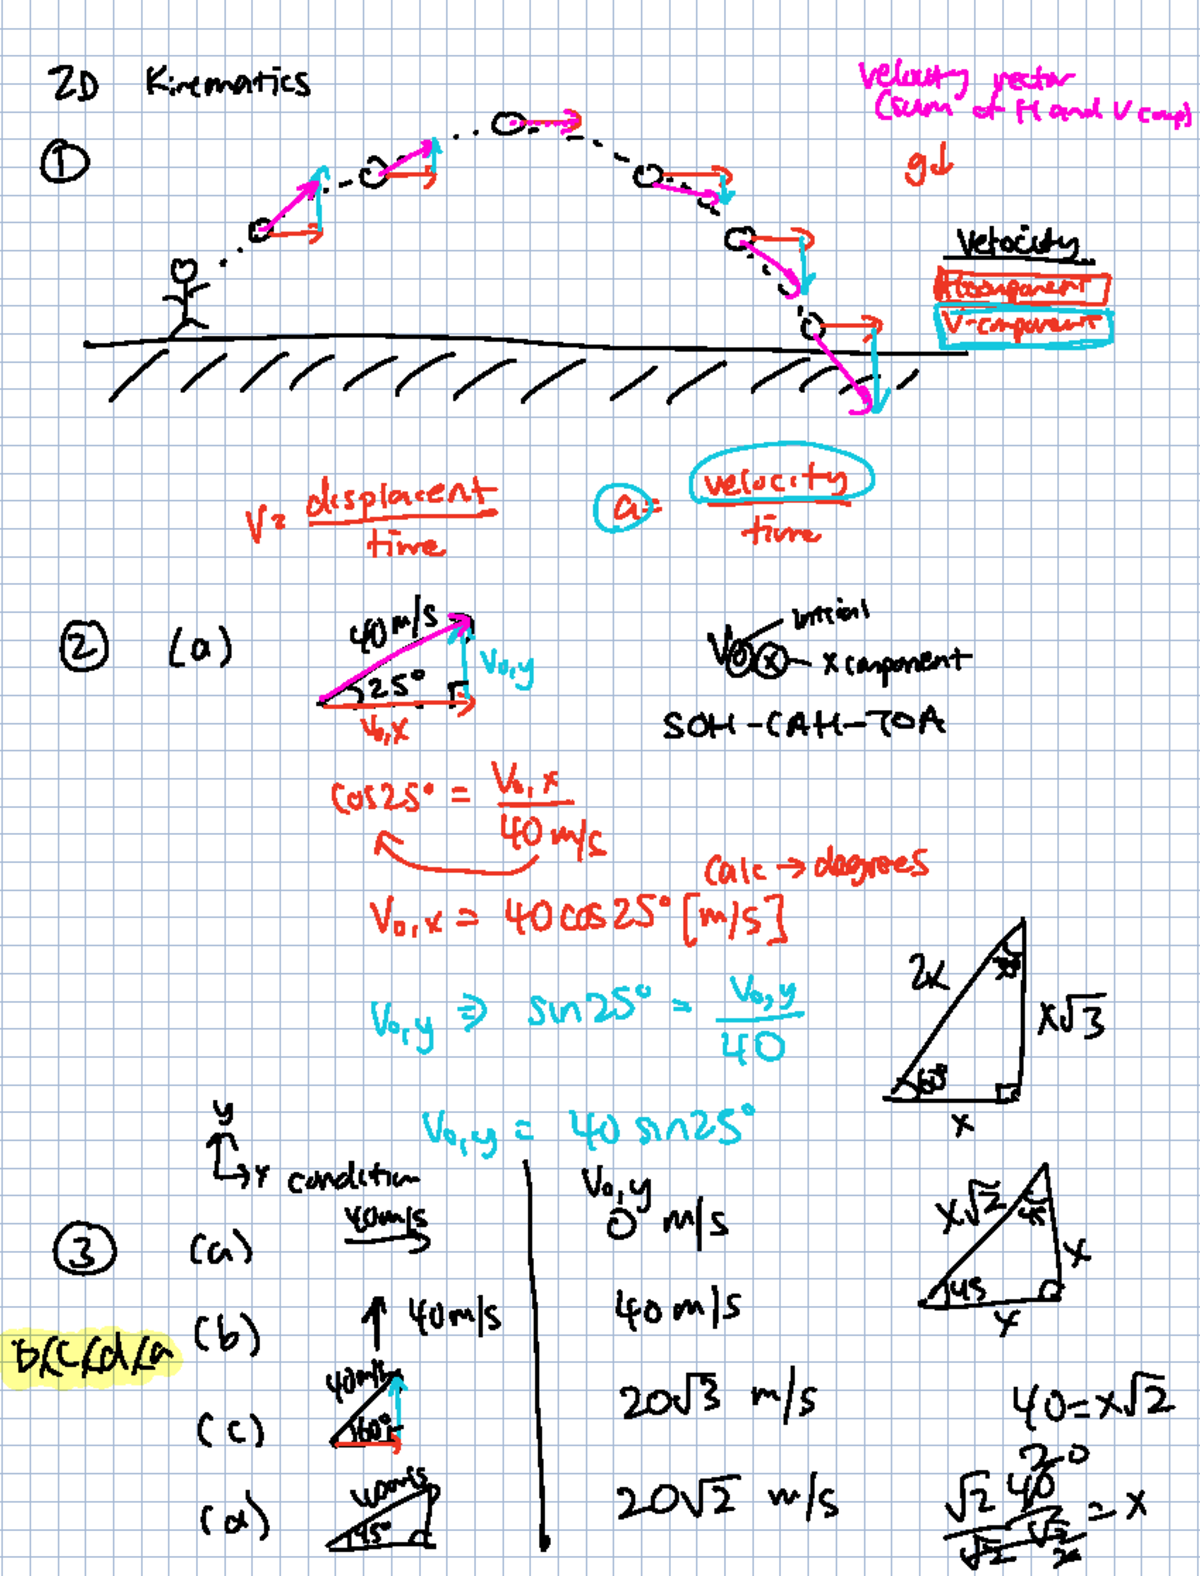 2D Kinematics
velocity vector
(sum of H and V comp)
①
g↓
Velocity
H component
V-component
V= displacent/time
a= velocity/time
② (a)
40 m/s
25°
V₀,y
V₀,x
V₀ₓ
initial
x component
SOH-CAH-TOA
cos25° = V₀,x/40 m/s
calc → degrees
V₀,x = 40cos25° [m/s]
V₀,y ⇒ sin25° = V₀,y/40
2x
30°
x√3
60°
x
V₀,y = 40 sin25°
y
x
condition
V₀,y
③ (a) 40m/s → 0 m/s
(b) ↑ 40m/s 40 m/s
b<c<d<a
(c) 40m/s 60° 20√3 m/s
(d) 40m/s 45° 20√2 m/s
x√2
45
x
45
x
40=x√2
20
√2/√2 40/√2 = x